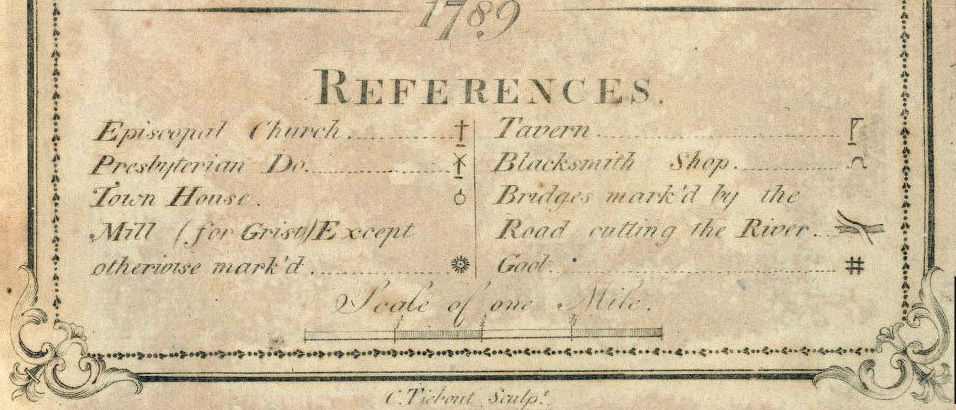 1789
REFERENCES.
Episcopal Church
Presbyterian Do.
Town House.
Mill (for Grist) Except
otherwise mark'd
Tavern
Blacksmith Shop.
Bridges mark'd by the
Road cutting the River.
Gaol.
Scale of one Mile.
C. Tiebout Sculpt.